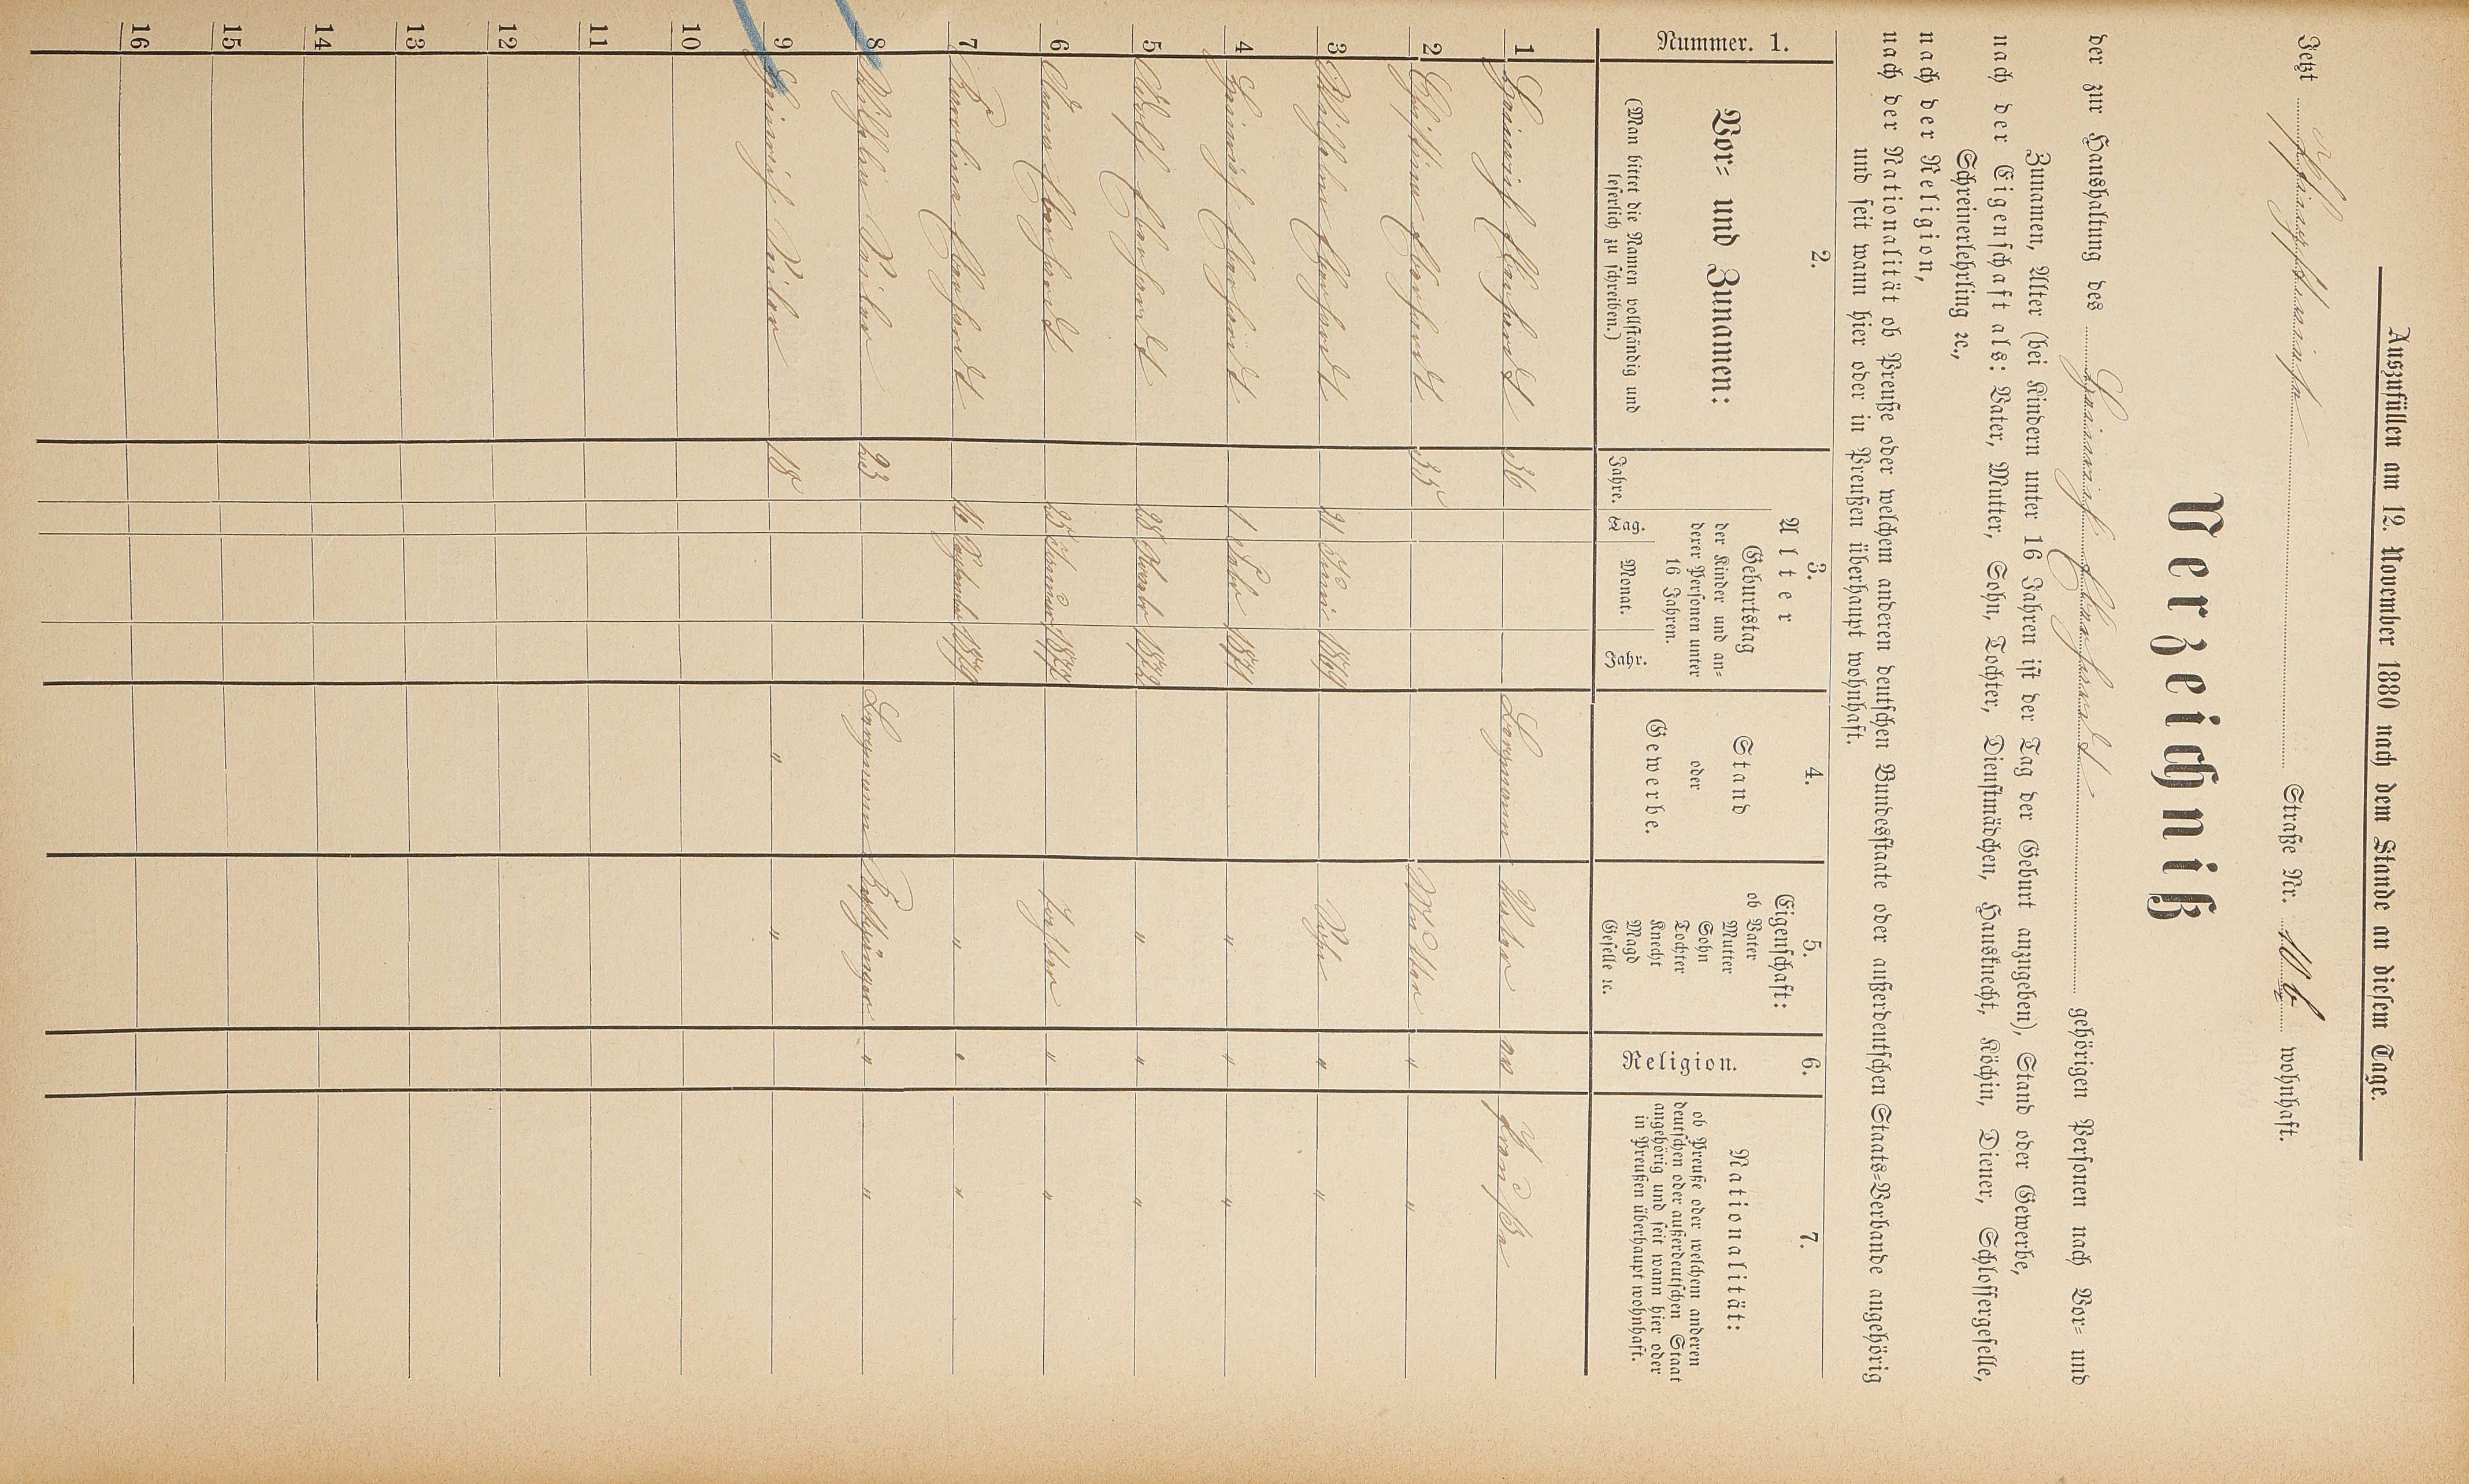 Auszufüllen am 12. November 1880 nach dem Stande an diesem Tage.
Jetzt Straße Nr. 10 b wohnhaft.
Verzeichniß
der zur Haushaltung des Heinrich Eberhardt gehörigen Personen nach Vor= und
Zunamen, Alter (bei Kindern unter 16 Jahren ist der Tag der Geburt anzugeben), Stand oder Gewerbe,
nach der Eigenschaft als: Vater, Mutter, Sohn, Tochter, Dienstmädchen, Hausknecht, Köchin, Diener, Schlossergeselle,
Schreinerlehrling ꝛc.,
nach der Religion,
nach der Nationalität ob Preuße oder welchem anderen deutschen Bundesstaate oder außerdeutschen Staats=Verbande angehörig
und seit wann hier oder in Preußen überhaupt wohnhaft.
Nummer. 1.
2.
Vor= und Zunamen:
(Man bittet die Namen vollständig und
leserlich zu schreiben.)
3.
Alter
Geburtstag
der Kinder und an=
derer Personen unter
16 Jahren.
Jahre. Tag. Monat. Jahr.
4.
Stand
oder
Gewerbe.
5.
Eigenschaft:
ob Vater
Mutter
Sohn
Tochter
Knecht
Magd
Geselle ꝛc.
6.
Religion.
7.
Nationalität:
ob Preuße oder welchem anderen
deutschen oder außerdeutschen Staat
angehörig und seit wann hier oder
in Preußen überhaupt wohnhaft.
1 Heinrich Eberhardt 36 Bergmann Vater ev Preuße
2 Christine Eberhardt 35 Mutter " "
3 Wilhelm Eberhardt 21 Juni 1869 Sohn " "
4 Heinrich Eberhardt 1 1871 " " "
5 Adolf Eberhardt 28 1872 " " "
6 Anna Eberhardt 25 Januar Tochter " "
7 Karoline Eberhardt 16 September 1879 " " "
8 Wilhelm 23 Bergmann Kostgänger " "
9 Heinrich 18 " "
10
11
12
13
14
15
16